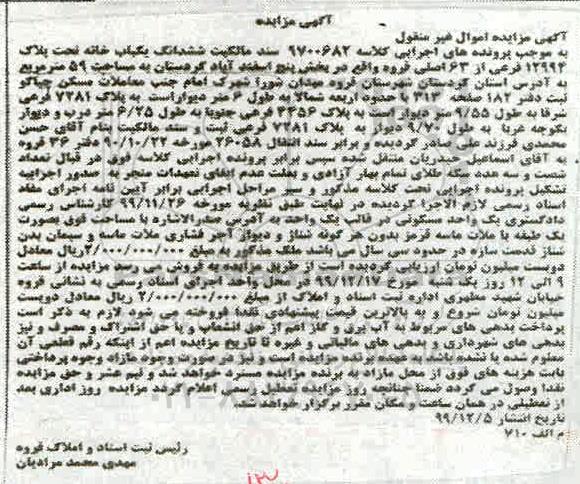 آگهی مزایده
آگهی مزایده اموال غیر منقول
به موجب پرونده های اجرایی کلاسه ۹۷۰۰۶۸۲ سند مالکیت ششدانگ یکباب خانه تحت پلاک
۱۲۹۹۴ فرعی از ۶۳ اصلی قروه واقع در بخش پنج اسفند آباد کردستان به مساحت ۵۹ مترمربع
به آدرس استان کردستان شهرستان قروه میدان شورا شهرک امام جنب معاملات مسکن چپاکو
ثبت دفتر ۱۸۲ صفحه ۳۱۳ با حدود اربعه شمالا به طول ۶ متر دیواراست به پلاک ۷۲۸۱ فرعی
شرقا به طول ۹/۵۵ متر دیوار است به پلاک ۳۳۵۶ فرعی جنوبا به طول ۶/۲۵ متر درب و دیوار
بکوچه غربا به طول ۹/۷۰ دیوار به پلاک ۷۲۸۱ فرعی ثبت و سند مالکیت بنام آقای حسن
محمدی فرزند علی صادر گردیده و برابر سند انتقال ۲۶۰۵۸ مورخه ۹۰/۱۰/۲۲ دفتر ۳۶ قروه
به آقای اسماعیل حیدریان منتقل شده سپس برابر پرونده اجرایی کلاسه فوق در قبال تعداد
شصت و سه عدد سکه طلای تمام بهار آزادی و بعلت عدم ایفای تعهدات منجر به صدور اجراییه
تشکیل پرونده اجرایی تحت کلاسه مذکور و سیر مراحل اجرایی برابر آیین نامه اجرای مفاد
اسناد رسمی لازم الاجرا گردیده در نهایت طبق نظریه مورخه ۹۹/۱۱/۲۶ کارشناس رسمی
دادگستری یک واحد مسکونی در قالب یک واحد به آدرس صدرالاشاره با مساحت فوق بصورت
یک طبقه با ملات ماسه قرمز بدون هر گونه شناژ و دیوار آجر فشاری ملات ماسه و سیمان بدن
شناژ قدمت سازه در حدود سی سال می باشد ملک مذکور به مبلغ ۲/۰۰۰/۰۰۰/۰۰۰ریال معادل
دویست میلیون تومان ارزیابی گردیده است از طریق مزایده به فروش می رسد مزایده از ساعت
۹ الی ۱۲ روز یک شنبه مورخ ۹۹/۱۲/۱۷ در محل واحد اجرای اسناد رسمی به نشانی قروه
خیابان شهید مطهری اداره ثبت اسناد و املاک از مبلغ ۲/۰۰۰/۰۰۰/۰۰۰ ریال معادل دویست
میلیون تومان شروع و به بالاترین قیمت پیشنهادی نقدا فروخته می شود لازم به ذکر است
پرداخت بدهی های مربوط به آب برق و گاز اعم از حق انشعاب و یا حق اشتراک و مصرف و نیز
بدهی های شهرداری و بدهی های مالیاتی و غیره تا تاریخ مزایده اعم از اینکه رقم قطعی آن
معلوم شده یا نشده باشد به عهده برنده مزایده است و نیز در صورت وجود مازاد وجوه پرداختی
بابت هزینه های فوق از محل مازاد به برنده مزایده مسترد خواهد شد و نیم عشر و حق مزایده
نقدا وصول می گردد ضمنا چنانچه روز مزایده تعطیل رسمی اعلام گردد مزایده روز اداری بعد
از تعطیلی در همان ساعت و مکان مقرر برگزار خواهد شد.
تاریخ انتشار ۹۹/۱۲/۵
م الف ۷۱۰
رئیس ثبت اسناد و املاک قروه
مهدی محمد مرادیان